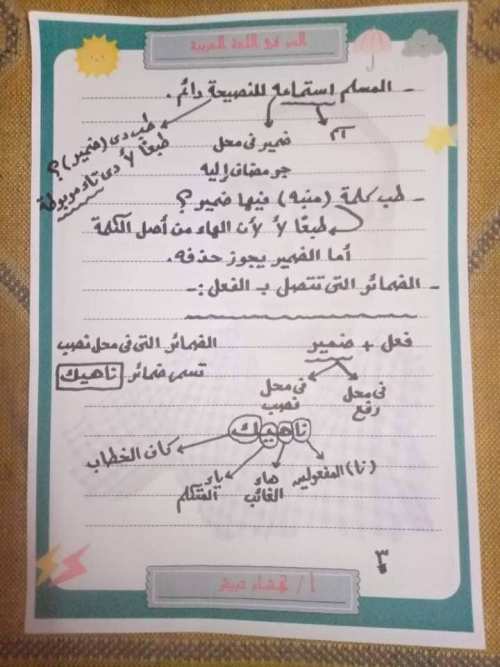 السر في اللغة العربية
- المسلم استماعه للنصيحة دائم.
اسم
ضمير في محل
جر مضاف إليه
طب دى (ضمير)؟
طبعًا لأ دى تاء مربوطة
- طب كلمة (منبه) فيها ضمير؟
طبعًا لأ لأن الهاء من أصل الكلمة
أما الضمير يجوز حذفه.
- الضمائر التى تتصل بـ الفعل:-
فعل + ضمير
فى محل
رفع
فى محل
نصب
الضمائر التى فى محل نصب
تسمى ضمائر ناهيك
ناهيك
(نا) المفعولين
هاء
الغائب
ياء
المتكلم
كاف الخطاب
٣
أ /